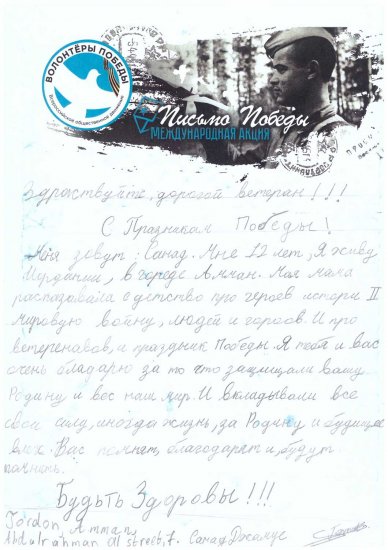 ВОЛОНТЁРЫ ПОБЕДЫ
Всероссийское общественное движение
Письмо Победы
МЕЖДУНАРОДНАЯ АКЦИЯ
Здраствуйте, дорогой ветеран!!!
С Празникам Победы!
Меня зовут: Самад. Мне 12 лет, Я живу
Иордании, в городе Амман. Моя мама
расказавала с детство про героев истори II
мировую войну, людей и гароев. И про
ветеренавов, а праздник Победы. Я тебя и вас
очень бладарю за то что защищали вашу
Родину и вес наш мир. И вкладывали все
свои силу, иногда жизнь, за Родину и будищее
всех. Вас помнят, благодарят и, будут
помнить.
Будьть Здоровы!!!
Jordon Amman,
Abdulrahman street, 7. Самад